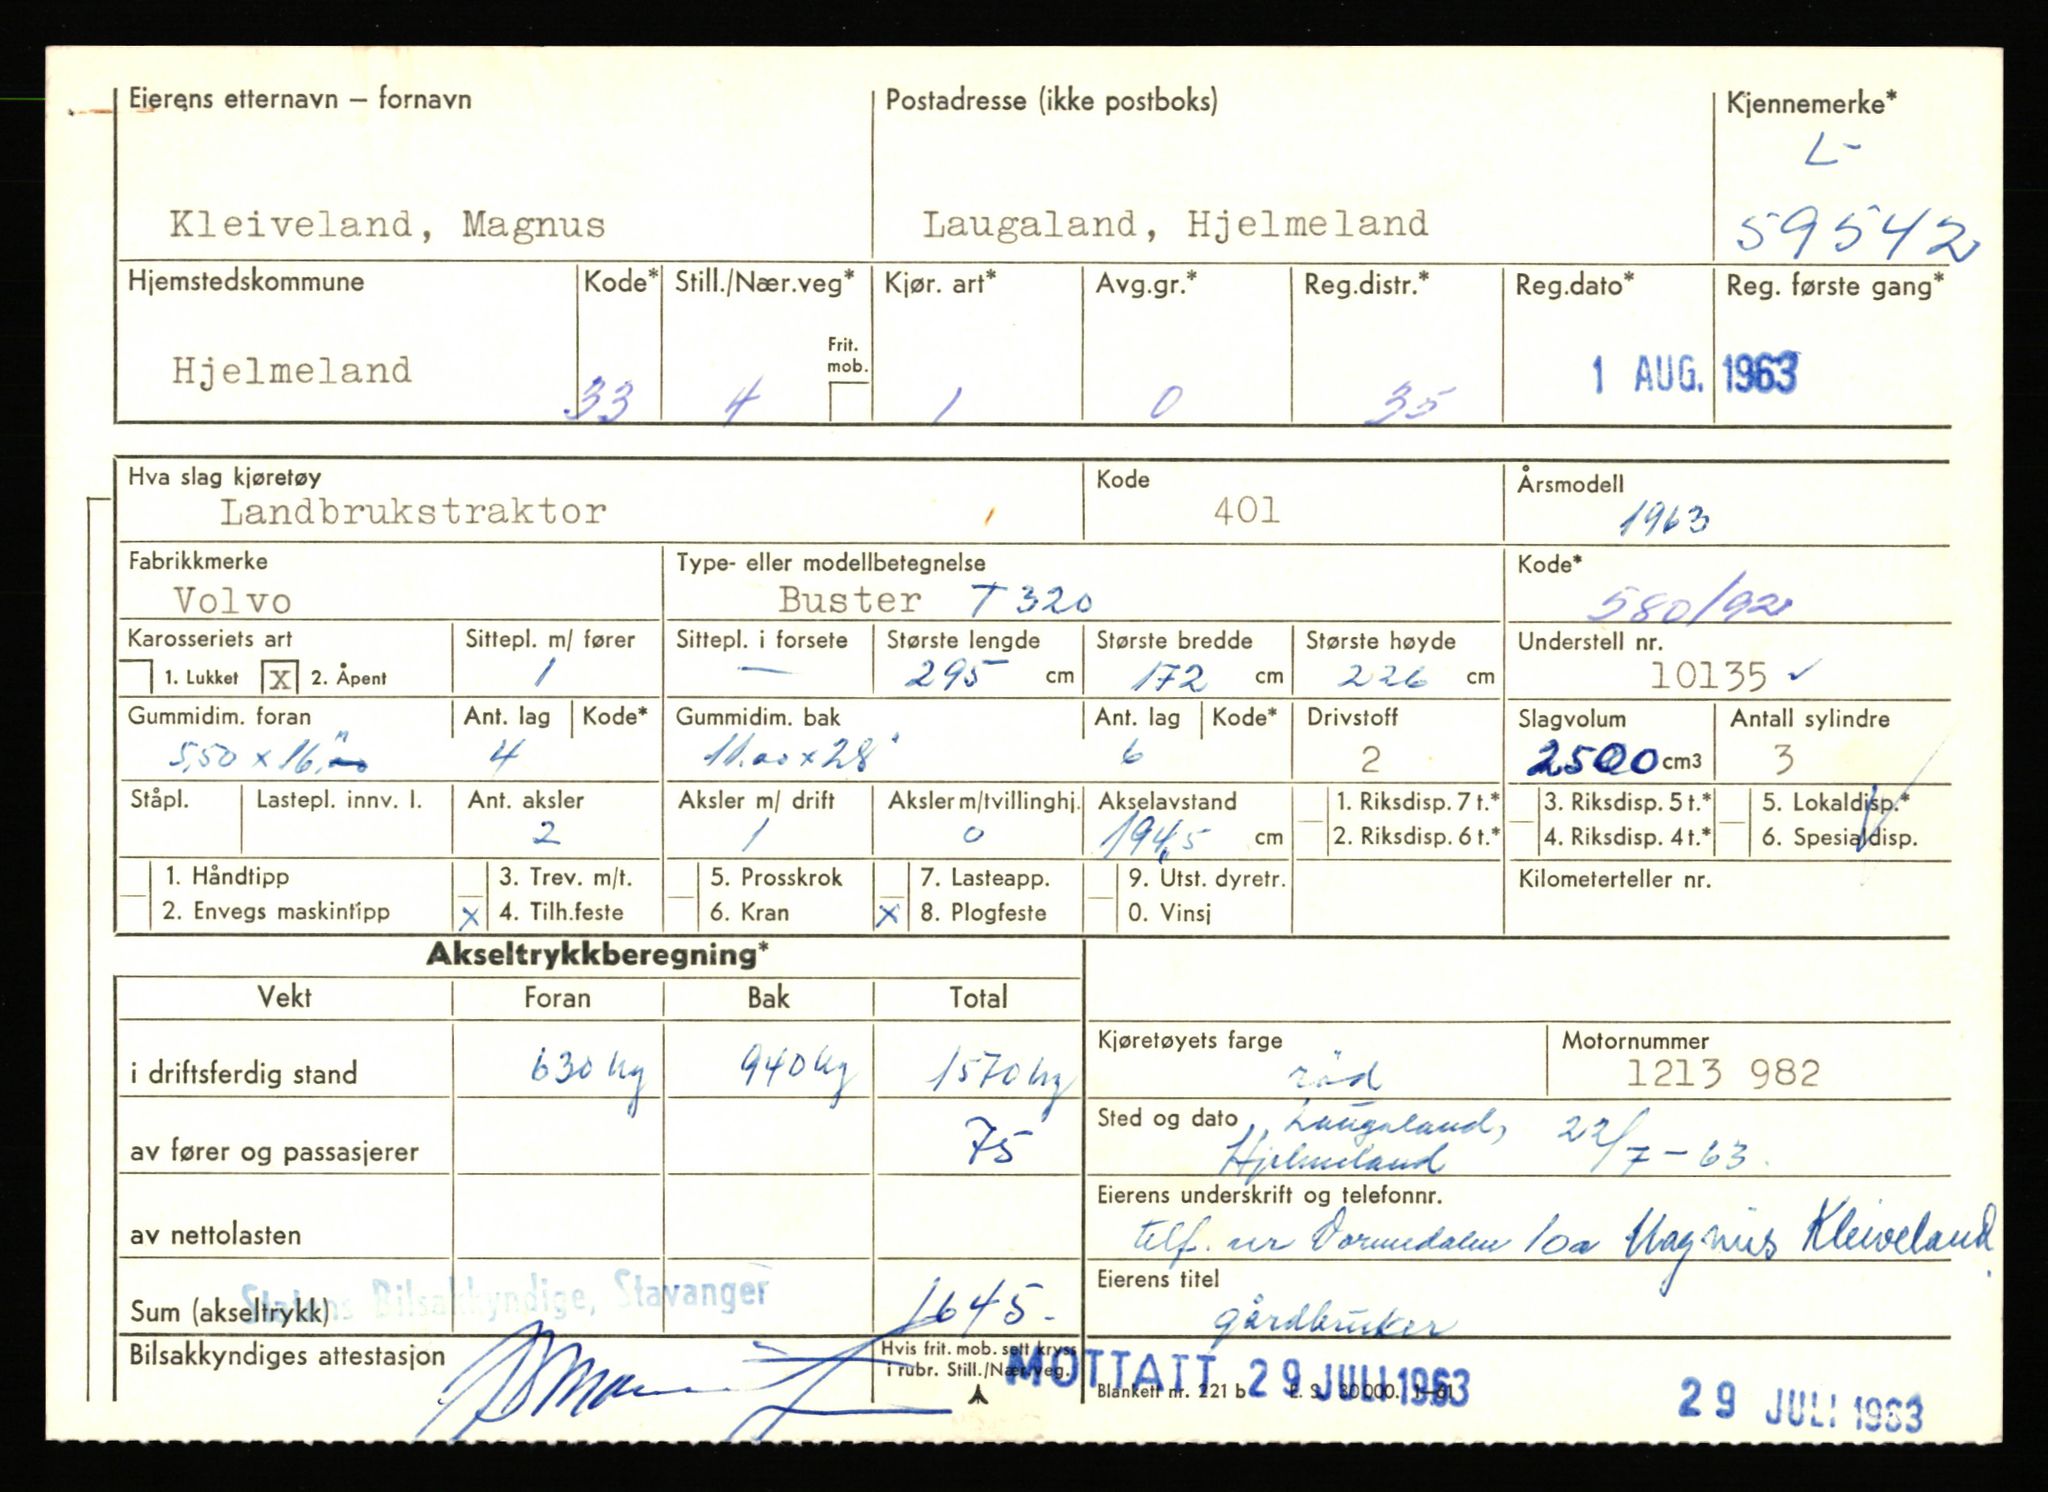 Eierens etternavn – fornavn Postadresse (ikke postboks) Kjennemerke*
L-
Kleiveland, Magnus Laugaland, Hjelmeland 59542
Hjemstedskommune Kode* Still./Nær.veg* Kjør. art* Avg.gr.* Reg.distr.* Reg.dato* Reg. første gang*
Frit. mob.
Hjelmeland 33 4 1 0 35 1 AUG. 1963
Hva slag kjøretøy Kode Årsmodell
Landbrukstraktor 401 1963
Fabrikkmerke Type- eller modellbetegnelse Kode*
Volvo Buster T 320 580/92
Karosseriets art Sittepl. m/ fører Sittepl. i forsete Største lengde Største bredde Største høyde Understell nr.
1. Lukket X 2. Åpent 1 — 295 cm 172 cm 226 cm 10135 ✓
Gummidim. foran Ant. lag Kode* Gummidim. bak Ant. lag Kode* Drivstoff Slagvolum Antall sylindre
5,50 x 16" 4 11.00 x 28" 6 2 2500 cm3 3
Ståpl. Lastepl. innv. l. Ant. aksler Aksler m/ drift Aksler m/tvillinghj. Akselavstand 1. Riksdisp. 7 t.* 3. Riksdisp. 5 t.* 5. Lokaldisp.*
2 1 0 194,5 cm 2. Riksdisp. 6 t.* 4. Riksdisp. 4 t.* 6. Spesialdisp.
1. Håndtipp 3. Trev. m/t. 5. Prosskrok 7. Lasteapp. 9. Utst. dyretr. Kilometerteller nr.
2. Envegs maskintipp x 4. Tilh.feste 6. Kran x 8. Plogfeste 0. Vinsj
Akseltrykkberegning*
Vekt Foran Bak Total
Kjøretøyets farge Motornummer
i driftsferdig stand 630 kg 940 kg 1570 kg rød 1213 982
Sted og dato Laugaland, 22/7-63.
av fører og passasjerer 75 Hjelmeland
Eierens underskrift og telefonnr.
av nettolasten telf. nr 10a Magnus Kleiveland
Eierens titel
Statens Bilsakkyndige, Stavanger
Sum (akseltrykk) 1645.- gårdbruker
Bilsakkyndiges attestasjon Hvis frit. mob. sett kryss
i rubr. Still./Nær.veg.
MOTTATT 29 JULI 1963
Blankett nr. 221 b E. S. 30000. 1-61
29 JULI 1963